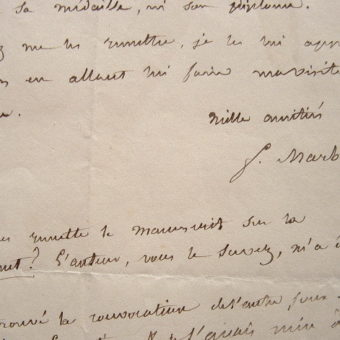 sa médaille, ni son diplome.
me les remettre, je les lui app
en allant lui faire ma visite
Mille amitiés
J. Marb
remette le manuscrit sur la
? L'auteur, vous le savez, m'a
trouvé la convocation de l'autre jour